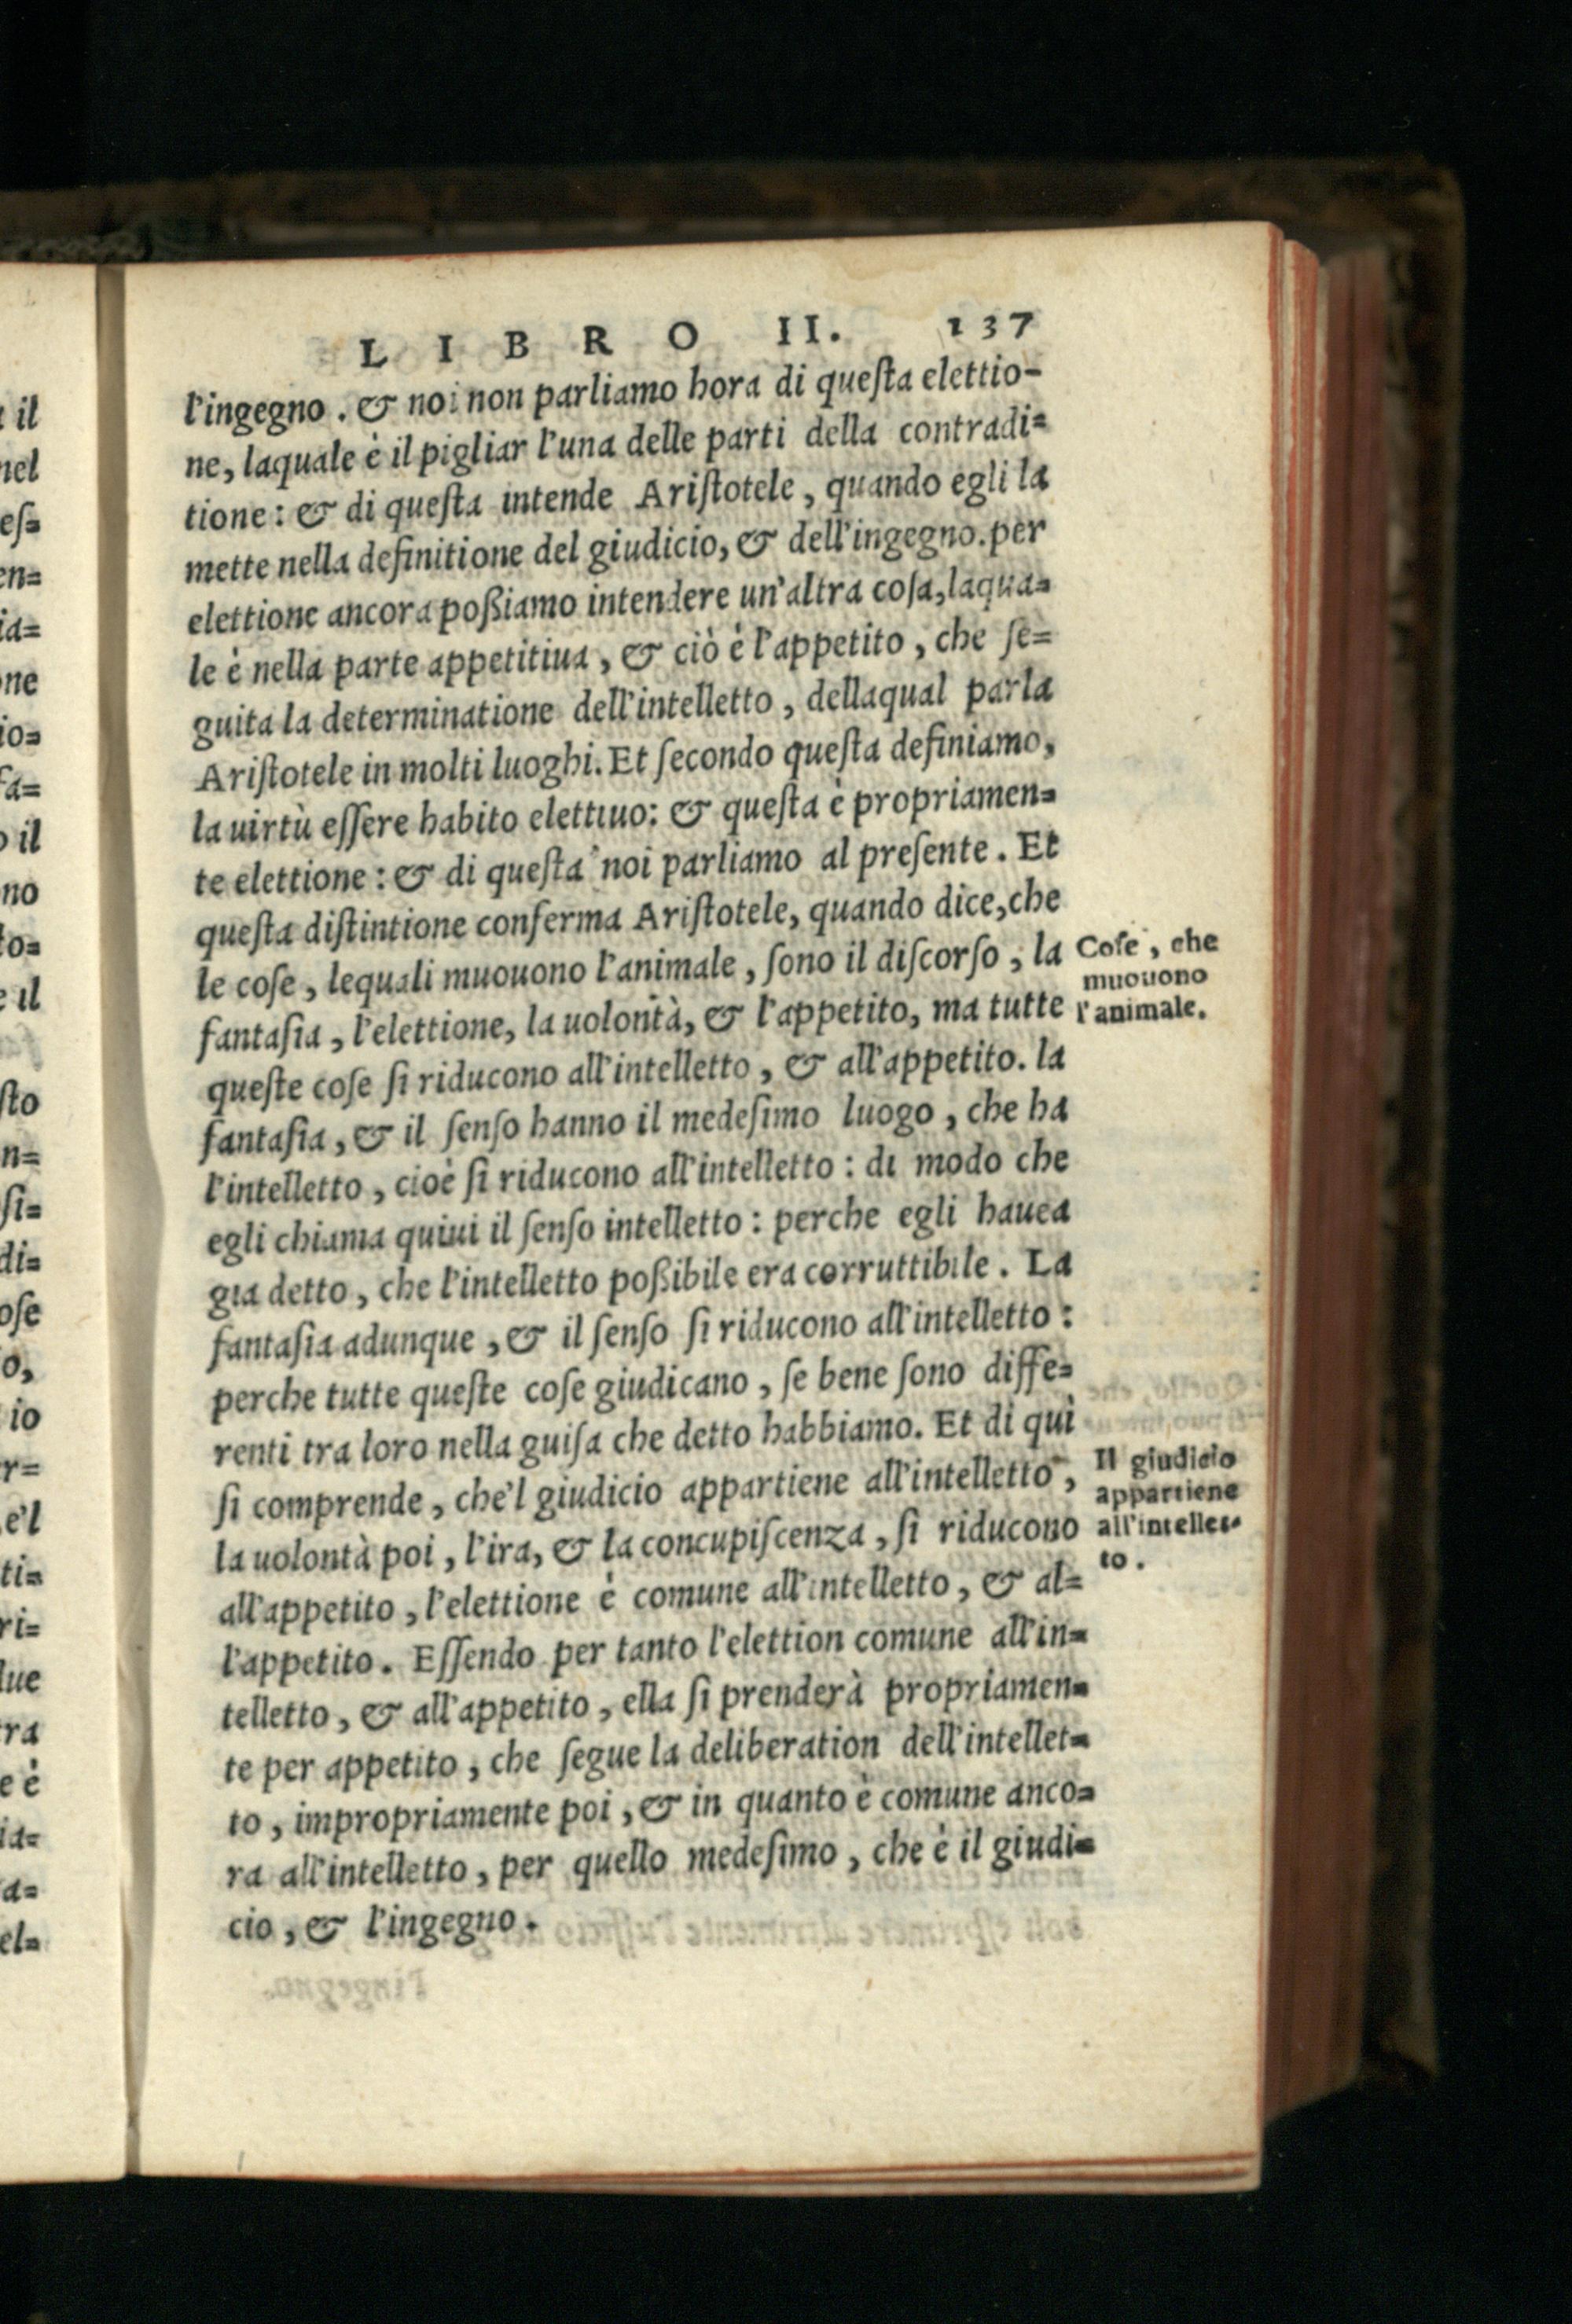 LIBRO II. 137
l'ingegno. & noi non parliamo hora di queſta elettio-
ne, laquale è il pigliar l'una delle parti della contradi=
tione: & di queſta intende Ariſtotele, quando egli la
mette nella definitione del giudicio, & dell'ingegno. per
elettione ancora poßiamo intendere un'altra coſa, laqua=
le è nella parte appetitiua, & ciò è l'appetito, che ſe=
guita la determinatione dell'intelletto, dellaqual parla
Ariſtotele in molti luoghi. Et ſecondo queſta definiamo,
la uirtù eſſere habito elettiuo: & queſta è propriamen=
te elettione: & di queſta noi parliamo al preſente. Et
queſta diſtintione conferma Ariſtotele, quando dice, che
le coſe, lequali muouono l'animale, ſono il diſcorſo, la
fantaſia, l'elettione, la uolontà, & l'appetito, ma tutte
queſte coſe ſi riducono all'intelletto, & all'appetito. la
fantaſia, & il ſenſo hanno il medeſimo luogo, che ha
l'intelletto, cioè ſi riducono all'intelletto: di modo che
egli chiama quiui il ſenſo intelletto: perche egli hauea
gia detto, che l'intelletto poßibile era corruttibile. La
fantaſia adunque, & il ſenſo ſi riducono all'intelletto:
perche tutte queſte coſe giudicano, ſe bene ſono diffe=
renti tra loro nella guiſa che detto habbiamo. Et di quì
ſi comprende, che'l giudicio appartiene all'intelletto,
la uolontà poi, l'ira, & la concupiſcenza, ſi riducono
all'appetito, l'elettione è comune all'intelletto, & al=
l'appetito. Eſſendo per tanto l'elettion comune all'in=
telletto, & all'appetito, ella ſi prenderà propriamen=
te per appetito, che ſegue la deliberation dell'intellet=
to, impropriamente poi, & in quanto è comune anco=
ra all'intelletto, per quello medeſimo, che è il giudi=
cio, & l'ingegno.
Coſe, che
muouono
l'animale.
Il giudicio
appartiene
all'intellet=
to.
il
nel
eſ=
en=
ia=
ne
io=
fa=
il
no
to=
il
ſto
n=
ſi=
di=
oſe
o,
io
r=
e'l
ti=
ri=
lue
tra
e è
ia=
a=
el=